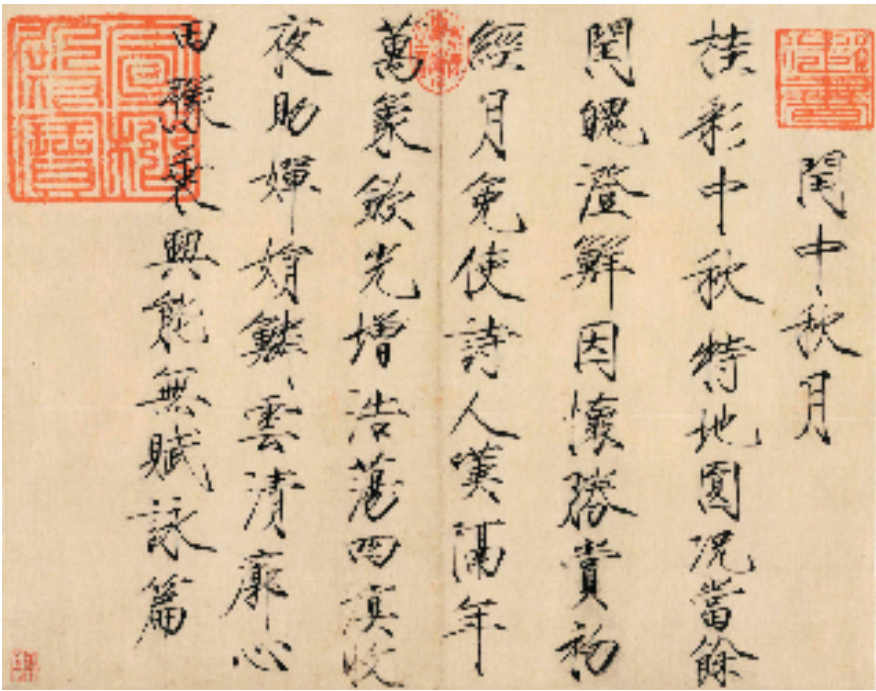 閏中秋月
桂彩中秋特地圓況當餘
閏魄澄鮮因懷勝賞初
經月免使詩人嘆隔年
萬象斂光增浩蕩四溟收
夜助嬋娟鱗雲清廓心
田豫乘興能無賦詠篇